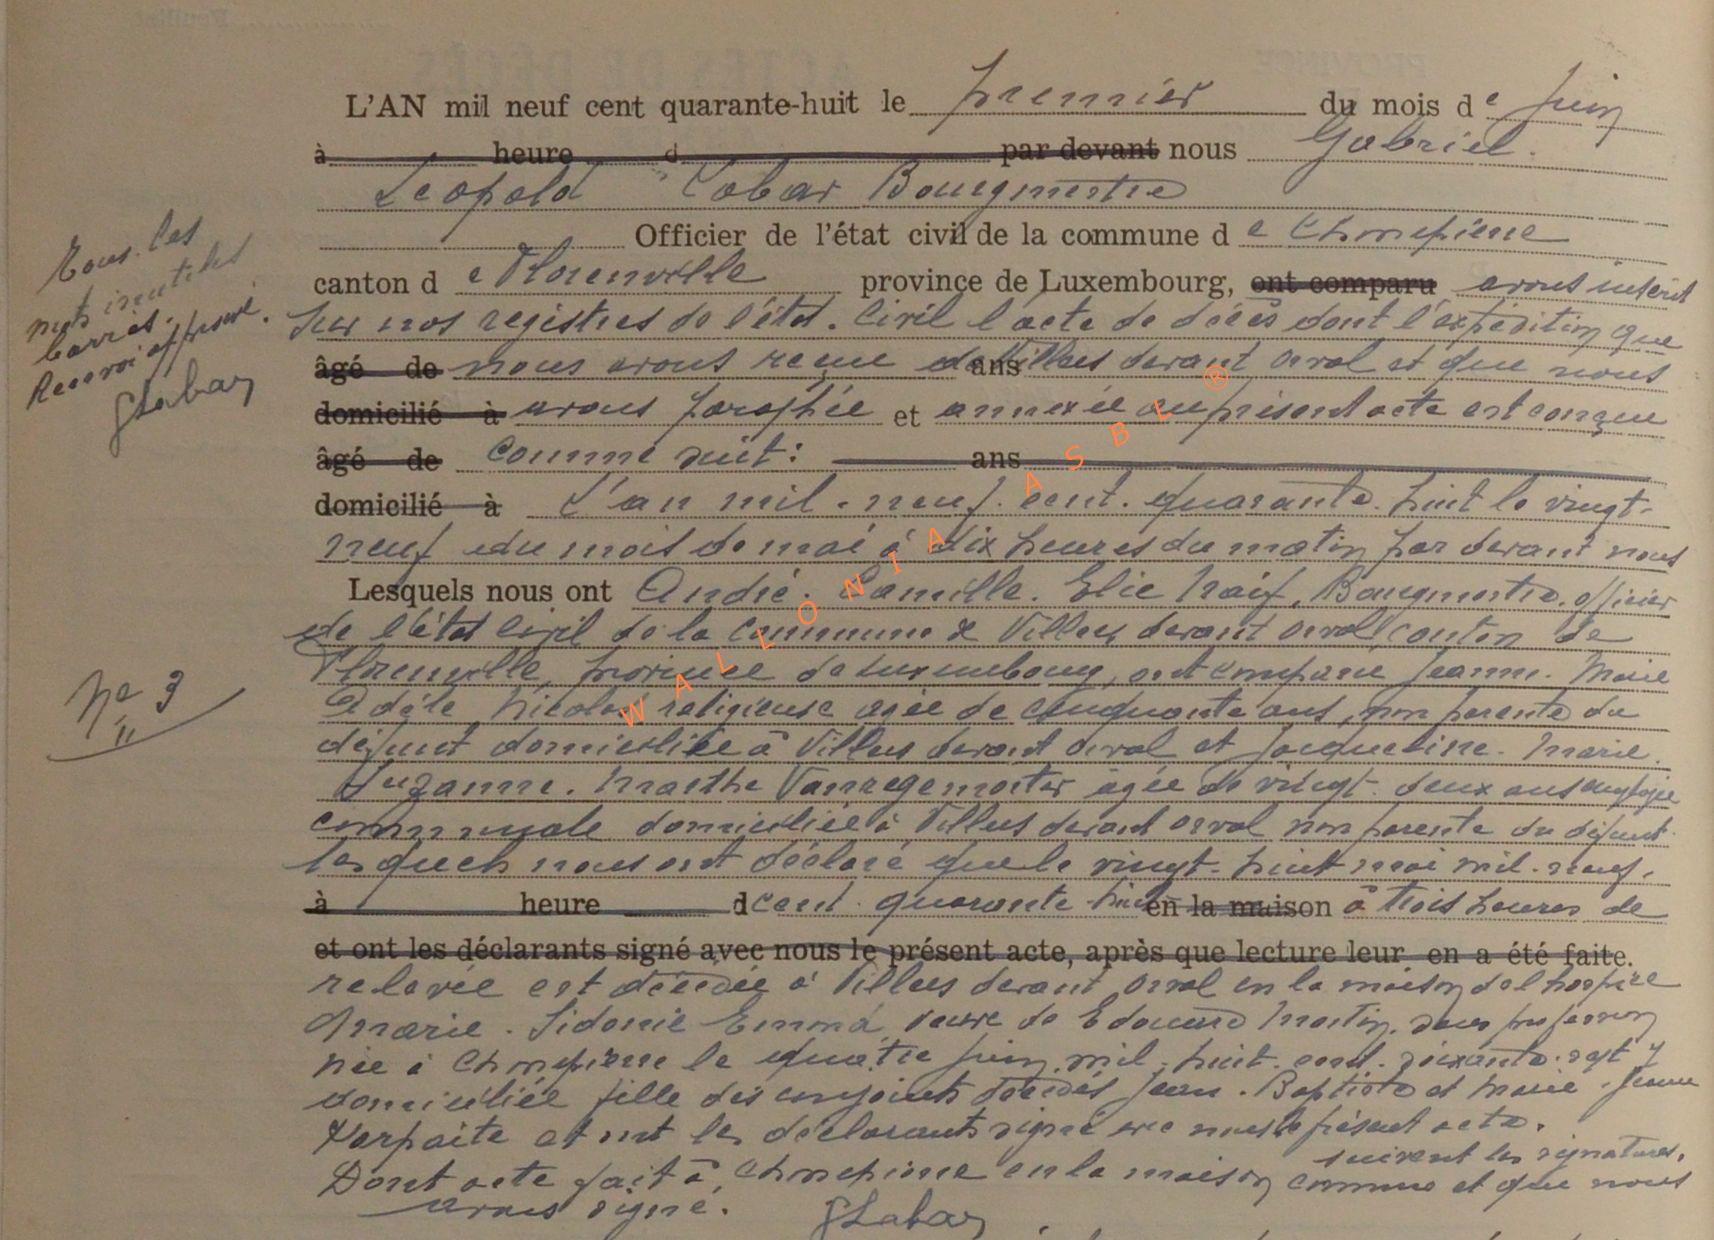 L'AN mil neuf cent quarante-huit le premier du mois de Juin
à heure d par devant nous Gabriel.
Léopold Labar Bourgmestre
Officier de l'état civil de la commune de Chassepierre
canton de Florenville province de Luxembourg, ont comparu avons inscrit
sur nos registres de l'état. Civil l'acte de décès dont l'expédition que
âgé de nous avons reçue de ans Villers devant orval et que nous
domicilié à avons paraphée et annexée au présent acte est conçue
âgé de comme suit: ans
domicilié à L'an mil. neuf. cent. quarante. huit le vingt-
neuf du mois de mai à dix heures du matin par devant nous
Lesquels nous ont André. Camille. Elie Naif, Bourgmestre, officier
de l'état Civil de la Commune de Villers devant orval canton de
Florenville, province de Luxembourg, ont comparu Jeanne. Marie
Adèle Nicolas religieuse agée de cinquante ans, non parente du
défunt domiciliée à Villers devant orval et Jacqueline. Marie.
Suzanne. Marthe Vanregemorter agée de vingt-deux ans employée
communale domiciliée à Villers devant orval non parente du défunt
lesquels nous ont déclaré que le vingt-huit mai mil. neuf.
à heure d cent. quarante huit en la maison à trois heures de
et ont les déclarants signé avec nous le présent acte, après que lecture leur en a été faite.
relevée est décédée à Villers devant orval en la maison de l'hospice
Marie. Sidonie Emma, veuve de Edouard Martin, sans profession
née à Chassepierre le quatre Juin mil. huit. cent. soixante. sept y
domiciliée fille des conjoints décédés Jean. Baptiste et Marie. Jeanne
Parfaite et ont les déclarants signé avec nous le présent acte.
suivent les signatures.
Dont acte fait à Chassepierre en la maison commune et que nous
avons signé. GLabar
Tous les
mots inutiles
barrés.
Renvoi approuvé.
GLabar
No 3
WALLONIA ASBL ®